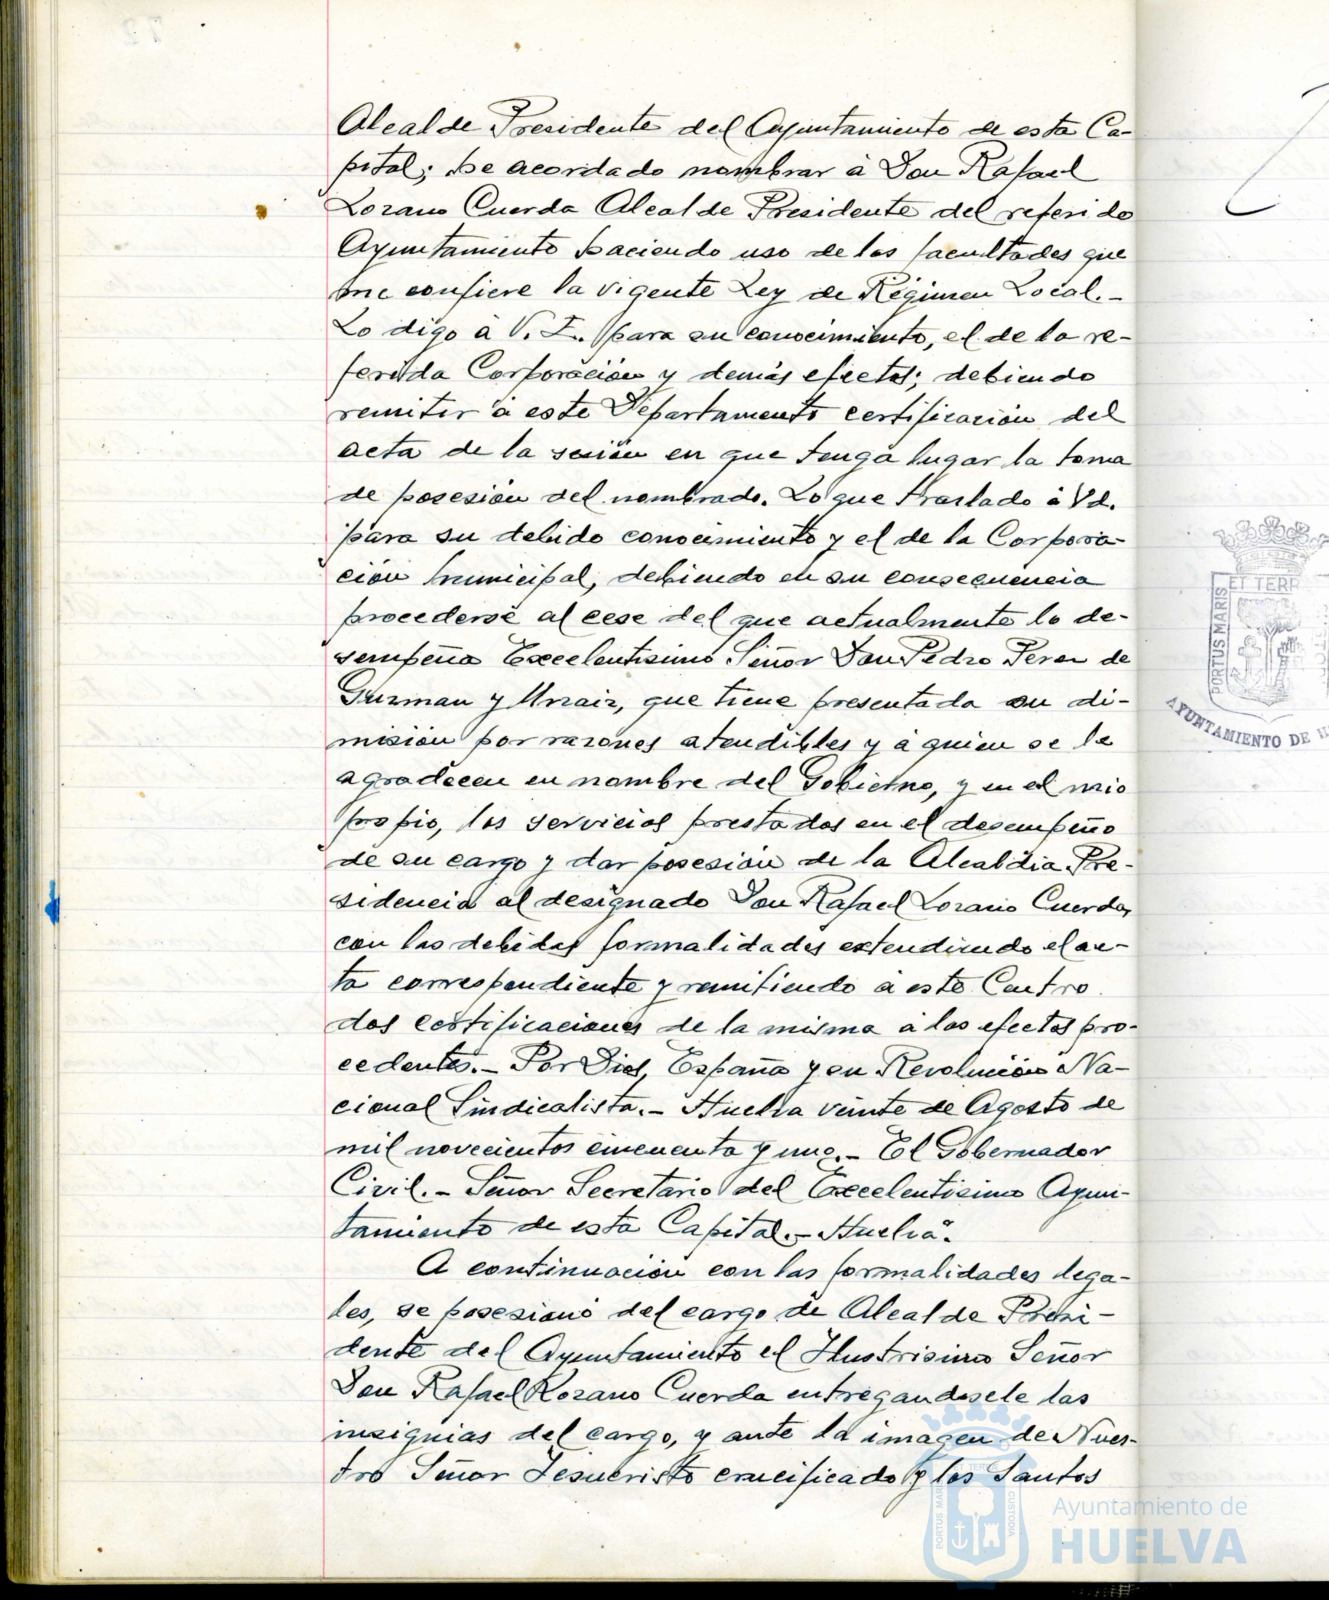 Alcalde Presidente del Ayuntamiento de esta Ca-
pital; he acordado nombrar á Don Rafael
Lozano Cuerda Alcalde Presidente del referido
Ayuntamiento haciendo uso de las facultades que
me confiere la vigente Ley de Régimen Local.-
Lo digo á V. I. para su conocimiento, el de la re-
ferida Corporación y demás efectos; debiendo
remitir á este Departamento certificación del
acta de la sesión en que tenga lugar la toma
de posesión del nombrado. Lo que traslado á Vd.
para su debido conocimiento y el de la Corpora-
ción municipal, debiendo en su consecuencia
procederse al cese del que actualmente lo de-
sempeña Excelentisimo Señor Don Pedro Perez de
Guzman y Urzaiz, que tiene presentada su di-
misión por razones atendibles y á quien se le
agradecen en nombre del Gobierno, y en el mio
propio, los servicios prestados en el desempeño
de su cargo y dar posesión de la Alcaldia Pre-
sidencia al designado Don Rafael Lozano Cuerda,
con las debidas formalidades extendiendo el ac-
ta correspondiente y remitiendo á este Centro
dos certificaciones de la misma á los efectos pro-
cedentes.- Por Dios, España y su Revolución Na-
cional Sindicalista.- Huelva veinte de Agosto de
mil novecientos cincuenta y uno.- El Gobernador
Civil.- Señor Secretario del Excelentisimo Ayun-
tamiento de esta Capital.- Huelva".
A continuación con las formalidades lega-
les, se posesionó del cargo de Alcalde Presi-
dente del Ayuntamiento el Ilustrisimo Señor
Don Rafael Lozano Cuerda entregandosele las
insignias del cargo, y ante la imagen de Nues-
tro Señor Jesucristo crucificado y los Santos
PORTUS MARIS
ET TERR
AYUNTAMIENTO DE
PORTUS MARIS
ET TERR
CUSTODIA
Ayuntamiento de
HUELVA